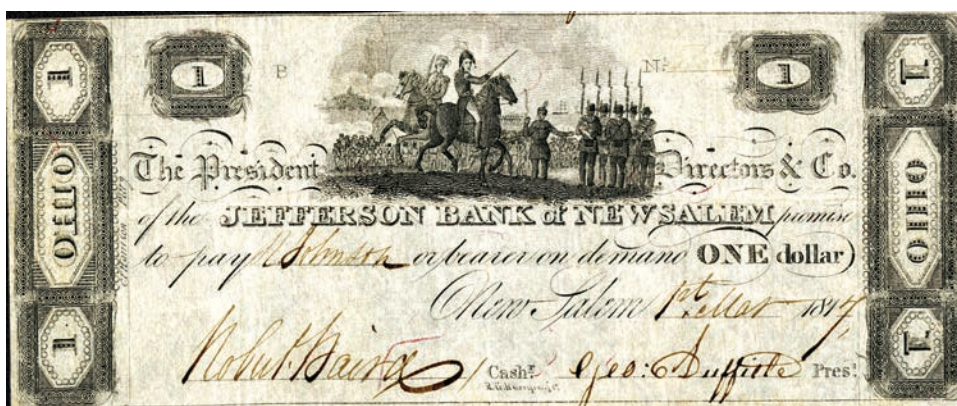 1 1 B Nº 1 1
The President Directors & Co.
of the JEFFERSON BANK of NEW SALEM promise
to pay Johnson or bearer on demand ONE dollar
New Salem 1st Mar 1817
Robert Baird Cashr. Geo: Duffield Prest.
OHIO
OHIO
1
1